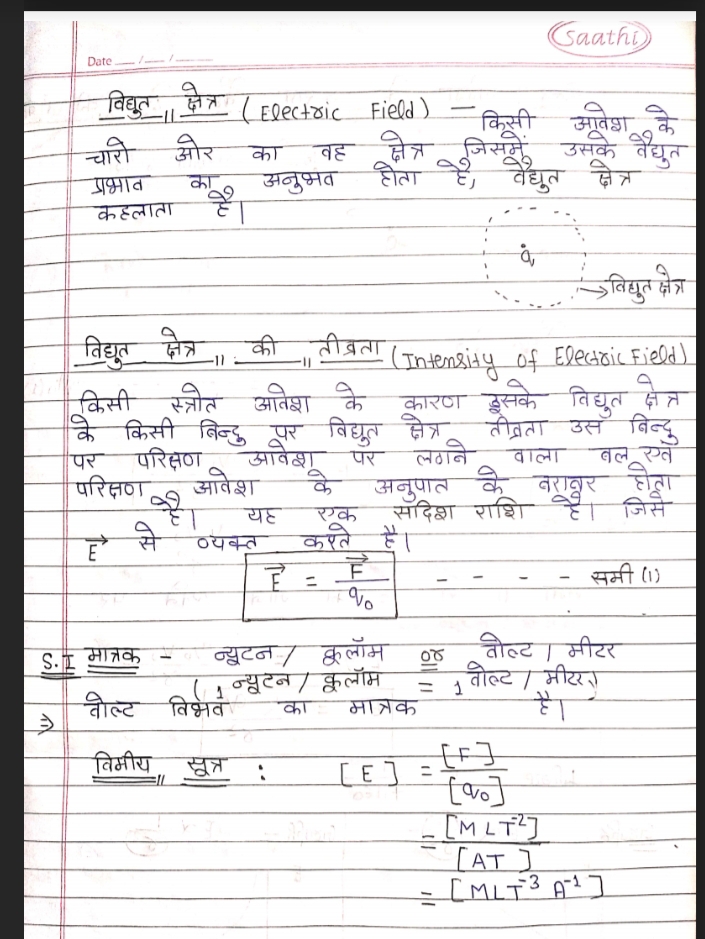 Saathi
Date __/__/__
विद्युत क्षेत्र ( Electric Field ) —
किसी आवेश के
चारो ओर का वह क्षेत्र जिसमें उसके वैद्युत
प्रभाव का अनुभव होता है, वैद्युत क्षेत्र
कहलाता है।
q
→विद्युत क्षेत्र
विद्युत क्षेत्र की तीव्रता (Intensity of Electric Field)
किसी स्त्रोत आवेश के कारण इसके विद्युत क्षेत्र
के किसी बिन्दु पर विद्युत क्षेत्र तीव्रता उस बिन्दु
पर परिक्षण आवेश पर लगने वाला बल एवं
परिक्षण आवेश के अनुपात के बराबर होता
है। यह एक सदिश राशि है। जिसे
E→ से व्यक्त करते है।
E→ = F→ / q₀ - - - - समी (1)
S.I मात्रक - न्यूटन / कूलॉम or वोल्ट / मीटर
( 1 न्यूटन / कूलॉम = 1 वोल्ट / मीटर )
⇒ वोल्ट विभव का मात्रक है।
विमीय सूत्र : [E] = [F] / [q₀]
= [MLT⁻²] / [AT]
= [MLT⁻³ A⁻¹]